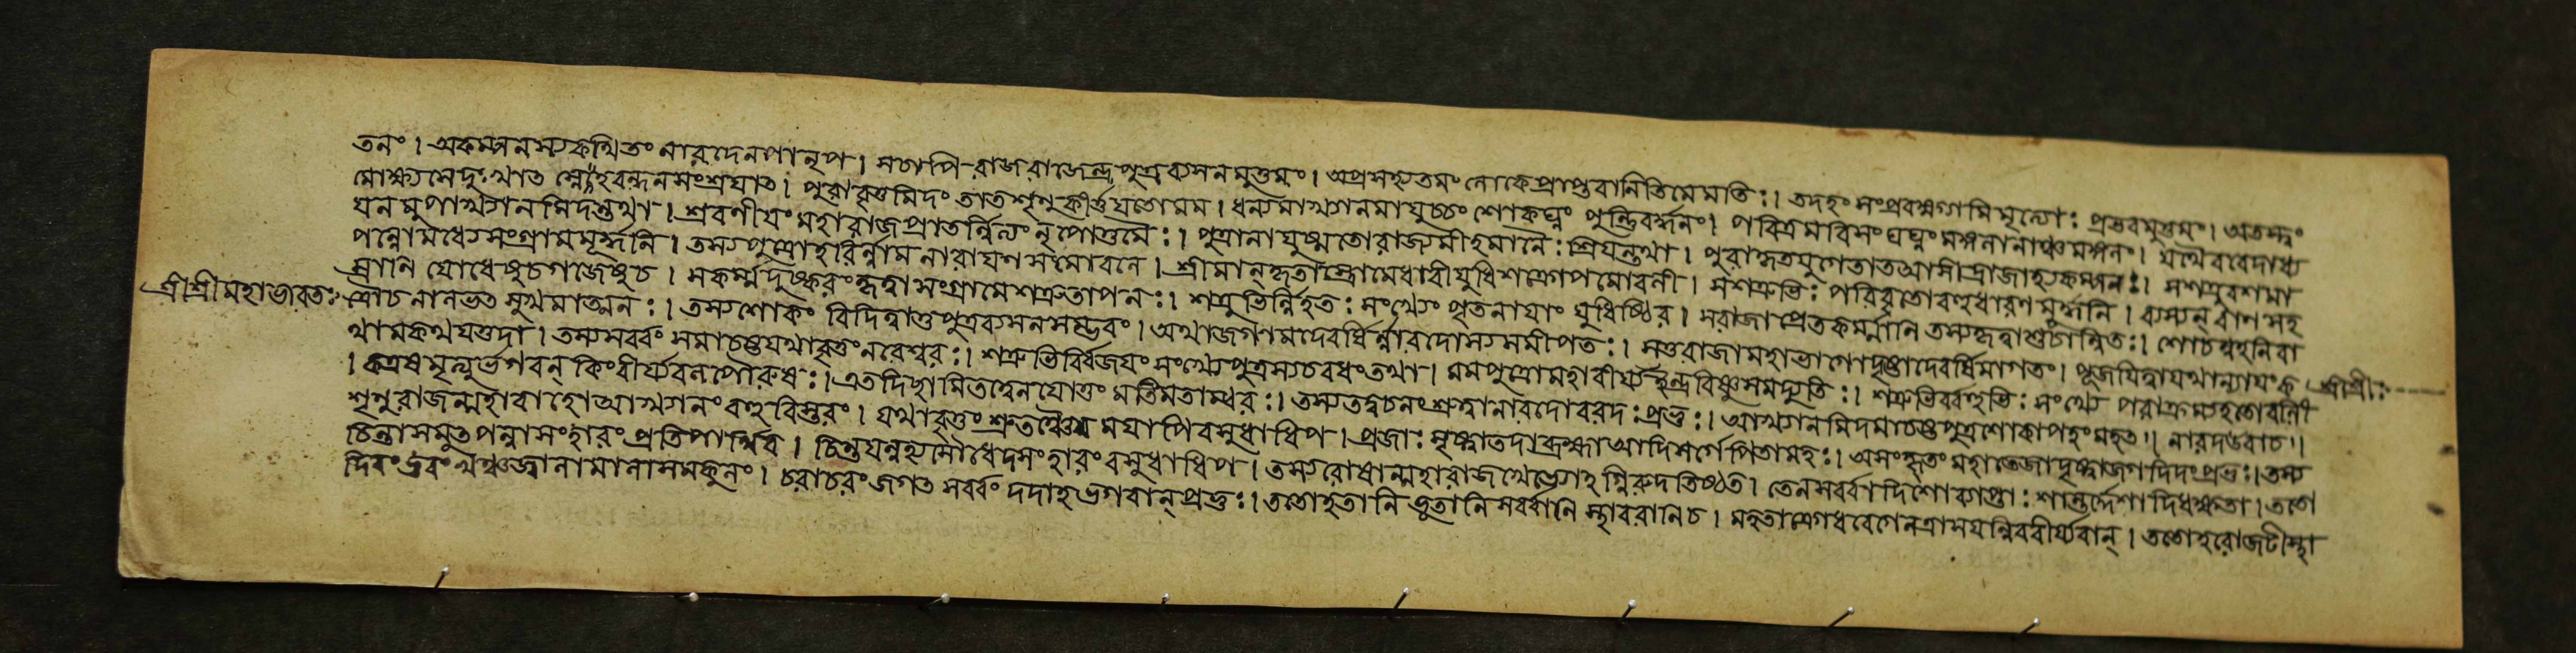 তনং। অকম্পনস্যকথিতং নারদেনপানৃপ। সচাপি রাজরাজেন্দ্র পুত্রব্যসনমুত্তমং। অপ্রসহ্যতমংলোকেপ্রাপ্তবানিতিমেমতিঃ। তদহং সংপ্রবক্ষ্যামি মৃত্যোঃ প্রভবমুত্তমং। অতস্ত্বং
মোক্ষ্যসেদুঃখাত স্নেহবন্ধনসংশ্রয়াত। পুরাবৃত্তমিদং তাত শৃণু কীর্ত্তয়তোমম। ধন্যমাখ্যানমায়ুচ্চং শোকঘ্নং পুষ্টিবর্দ্ধনং। পবিত্রমরিসংঘঘ্নং মঙ্গলানাঞ্চমঙ্গলং। যথৈববেদাধ্য
য়নমুপাখ্যানমিদন্তথা। শ্রবণীয়ং মহারাজ প্রাতর্ন্নিত্যং নৃপোত্তমৈঃ। পুত্রানায়ুষ্মতোরাজ্যমীহমানৈঃ শ্রিয়ন্তথা। পুরাকৃতযুগেতাতআসীদ্রাজাহ্যকম্পনঃ। সশত্রুবশমা
পন্নোমধ্যেসংগ্রামমূর্দ্ধনি। তস্যপুত্রোহরির্ন্নাম নারায়ণসমোবলে। শ্রীমান্কৃতাস্ত্রোমেধাবীযুধিশক্রোপমোবলী। সশত্রুভিঃ পরিবৃতোবহুধারণমূর্দ্ধনি। ব্যস্যন্ বাণসহ
স্রানি যোধেষুচগজেষুচ। সকর্ম্মদুষ্করংকৃত্বাসংগ্রামেশত্রুতাপনঃ। শত্রুভির্ন্নিহতঃ সংখ্যে পৃতনায়াং যুধিষ্ঠির। সরাজাপ্রেতকর্ম্মানি তস্যকৃত্বাশুচান্বিতঃ। শোচন্নহনিরা
শ্রীশ্রীমহাভারতঃ ত্রৌচনালভত সুখমাত্মনঃ। তস্যশোকং বিদিত্বাতুপুত্রব্যসনসম্ভবং। অথাজগামদেবর্ষির্ন্নারদোস্যসমীপতঃ। সতুরাজামহাভাগোদৃষ্ট্বাদেবর্ষিমাগতং। পূজয়িত্বাযথান্যায়ং ক শ্রীশ্রীঃ
থামকথয়ত্তদা। তস্যসর্ব্বং সমাচষ্টযথাবৃত্তংনরেশ্বরঃ। শত্রুভির্বিজয়ং সংখ্যেপুত্রস্যচবধংতথা। মমপুত্রোমহাবীর্য্য ইন্দ্রবিষ্ণুসমদ্যুতিঃ। শত্রুভির্বহুভিঃ সংখ্যে পরাক্রম্যহতোবলী
। কএষমৃত্যুর্ভগবন্ কিংবীর্য্যবলপৌরুষঃ। এতদিছামিতত্বেনশ্রোতুং মতিমতাম্বর। তস্যতদ্বচনংশ্রুত্বানারদোবরদঃ প্রভুঃ। আখ্যানমিদমাচষ্টপুত্রশোকাপহংমহত॥ নারদউবাচ॥
শৃণুরাজন্মহাবাহোআখ্যানং বহুবিস্তরং। যথাবৃত্তং শ্রুতঞ্চৈব ময়াপিবসুধাধিপ। প্রজাঃ সৃষ্ট্বাতদাব্রহ্মাআদিসর্গেপিতামহঃ। অসংহৃতং মহাতেজাদৃষ্ট্বাজগদিদংপ্রভুঃ। তস্য
চিন্তাসমুতপন্নাসংহারং প্রতিপার্থিব। চিন্তয়ন্নহ্যসৌবেদসংহারং বসুধাধিপ। তস্যরোষান্মহারাজখেভ্যোহগ্নিরুদতিষ্ঠত। তেনসর্ব্বাদিশোব্যাপ্তাঃ শান্তর্দ্দেশাদিধক্ষতা। ততো
দিবং ভুবং খঞ্চজ্বালামালাসমকুলং। চরাচরং জগত সর্ব্বং দদাহ ভগবান্ প্রভুঃ। ততোহতানি ভূতানি সর্ব্বানি স্থাবরানিচ। মহতাক্রোধবেগেনত্রাসয়ন্নিববীর্য্যবান্। ততোহরোজটীস্থা